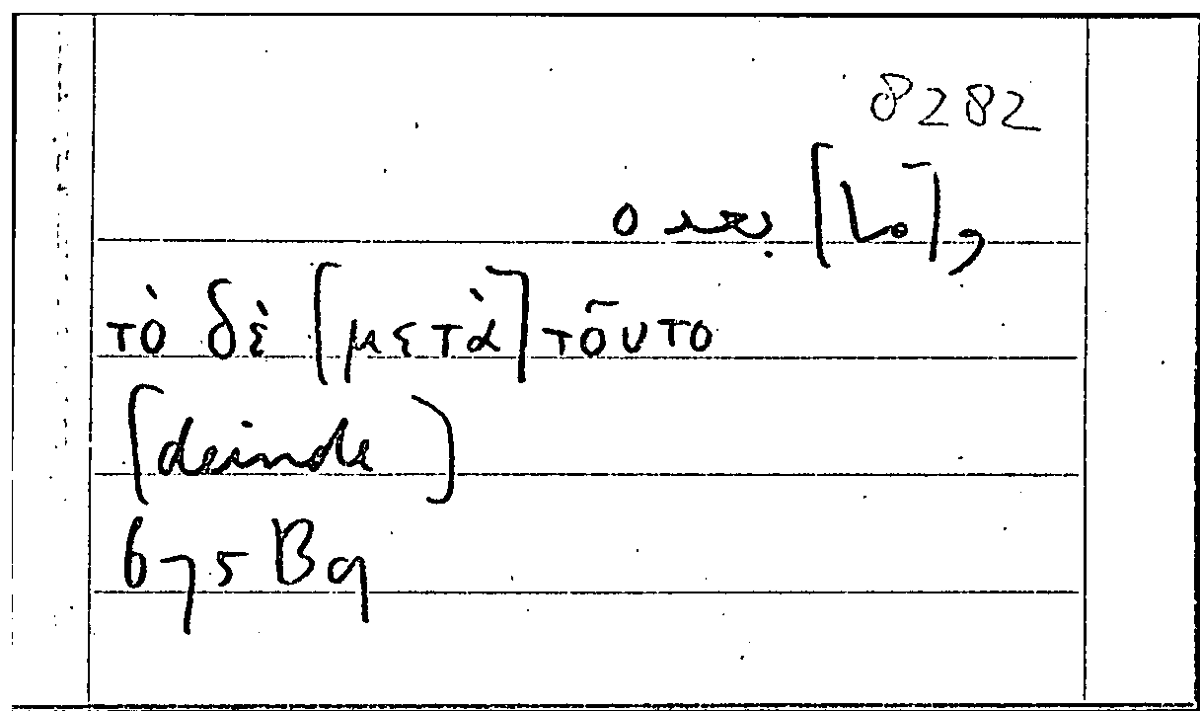 8282
τὸ δὲ [μετὰ] τοῦτο
[deinde]
675 B9